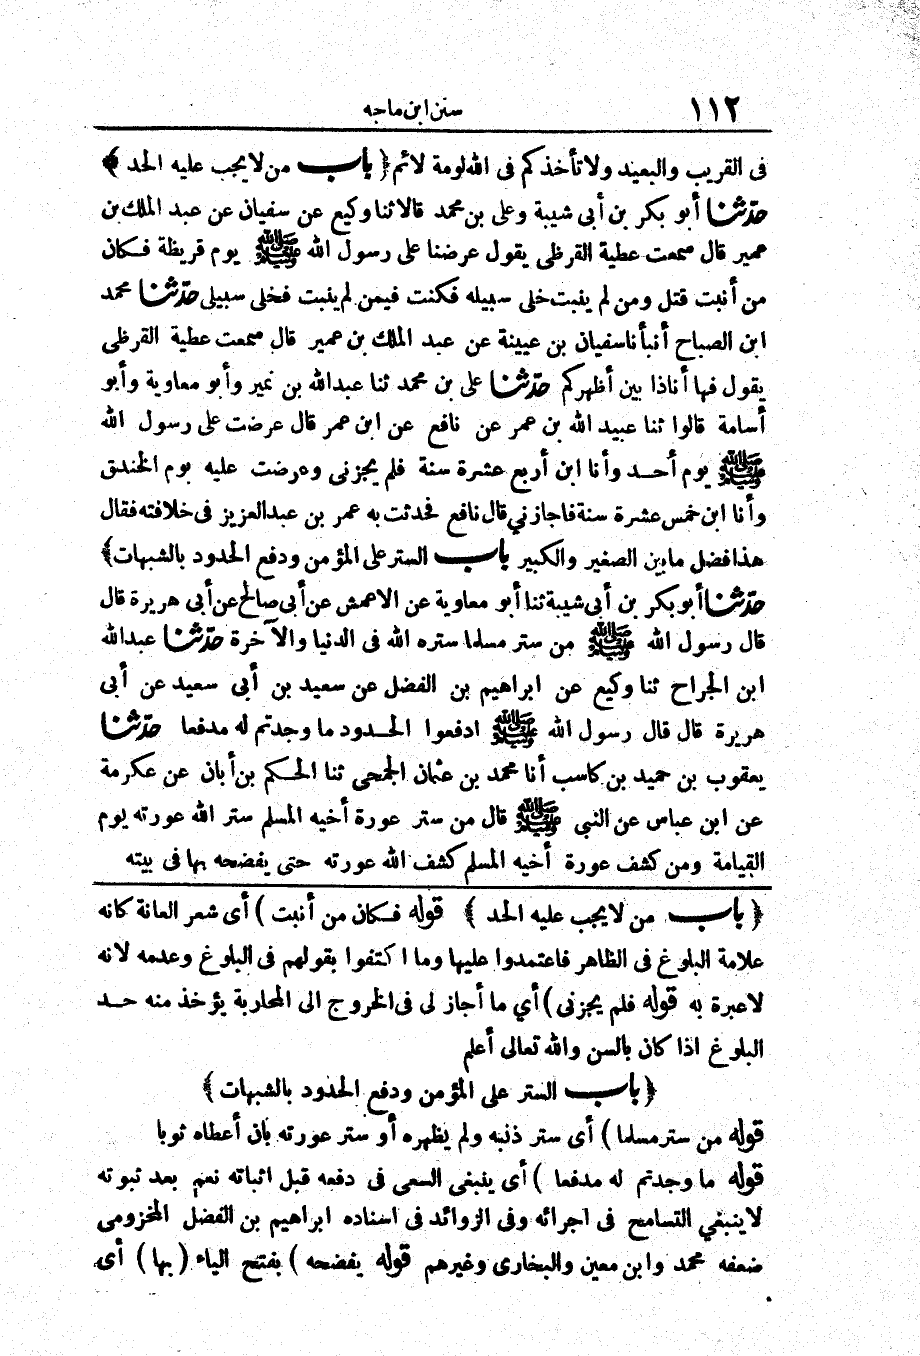 ١١٢ سنن ابن ماجه
فى القريب والبعيد ولا تأخذكم فى الله لومة لائم ﴿ باب من لا يجب عليه الحد ﴾
حدّثنا أبو بكر بن أبى شيبة وعلى بن محمد قالا ثنا وكيع عن سفيان عن عبد الملك بن
عمير قال سمعت عطية القرظى يقول عرضنا على رسول الله ﷺ يوم قريظة فكان
من أنبت قتل ومن لم ينبت خلى سبيله فكنت فيمن لم ينبت فخلى سبيلى حدّثنا محمد
ابن الصباح أنبأنا سفيان بن عيينة عن عبد الملك بن عمير قال سمعت عطية القرظى
يقول فها أناذا بين أظهركم حدّثنا على بن محمد ثنا عبدالله بن نمير وأبو معاوية وأبو
أسامة قالوا ثنا عبيد الله بن عمر عن نافع عن ابن عمر قال عرضت على رسول الله
ﷺ يوم أحد وأنا ابن أربع عشرة سنة فلم يجزنى وعرضت عليه يوم الخندق
وأنا ابن خمس عشرة سنة فاجازني قال نافع فحدثت به عمر بن عبدالعزيز فى خلافته فقال
هذا فضل مابين الصغير والكبير باب الستر على المؤمن ودفع الحدود بالشبهات﴾
حدّثنا أبو بكر بن أبى شيبة ثنا أبو معاوية عن الاعمش عن أبى صالح عن أبى هريرة قال
قال رسول الله ﷺ من ستر مسلما ستره الله فى الدنيا والآخرة حدّثنا عبدالله
ابن الجراح ثنا وكيع عن ابراهيم بن الفضل عن سعيد بن أبى سعيد عن أبى
هريرة قال قال رسول الله ﷺ ادفعوا الحدود ما وجدتم له مدفعا حدّثنا
يعقوب بن حميد بن كاسب أنا محمد بن عثمان الجمحى ثنا الحكم بن أبان عن عكرمة
عن ابن عباس عن النبى ﷺ قال من ستر عورة أخيه المسلم ستر الله عورته يوم
القيامة ومن كشف عورة أخيه المسلم كشف الله عورته حتى يفضحه بها فى بيته
﴿ باب من لا يجب عليه الحد ﴾ قوله فكان من أنبت ) أى شعر العانة كانه
علامة البلوغ فى الظاهر فاعتمدوا عليها وما اكتفوا بقولهم فى البلوغ وعدمه لانه
لاعبرة به قوله فلم يجزنى ) أي ما أجاز لى فى الخروج الى المحاربة يؤخذ منه حد
البلوغ اذا كان بالسن والله تعالى أعلم
﴿ باب الستر على المؤمن ودفع الحدود بالشبهات ﴾
قوله من ستر مسلما ) أى ستر ذنبه ولم يظهره أو ستر عورته بان أعطاه ثوبا
قوله ما وجدتم له مدفعا ) أى ينبغى السعى فى دفعه قبل اثباته نعم بعد ثبوته
لاينبغي التسامح فى اجرائه وفى الزوائد فى اسناده ابراهيم بن الفضل المخزومى
ضعفه محمد وابن معين والبخارى وغيرهم قوله يفضحه ) بفتح الياء ( بها ) أى